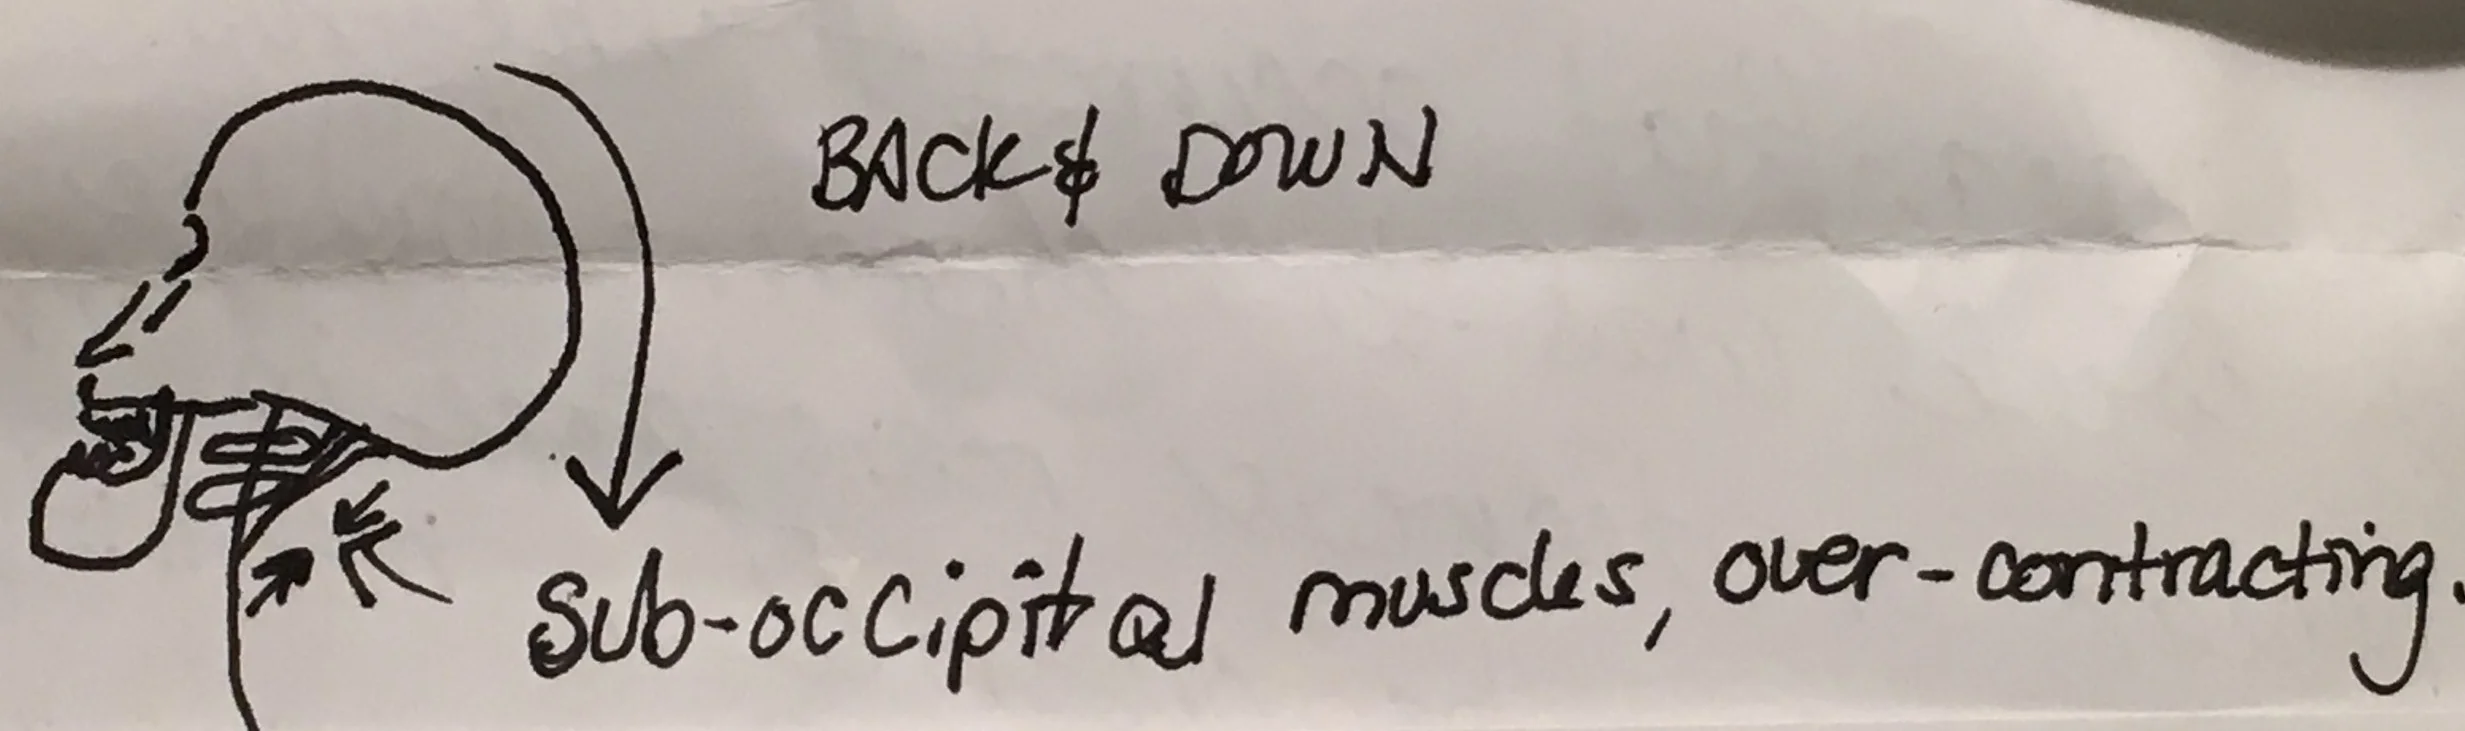 BACK & DOWN
Sub-occipital muscles, over-contracting.